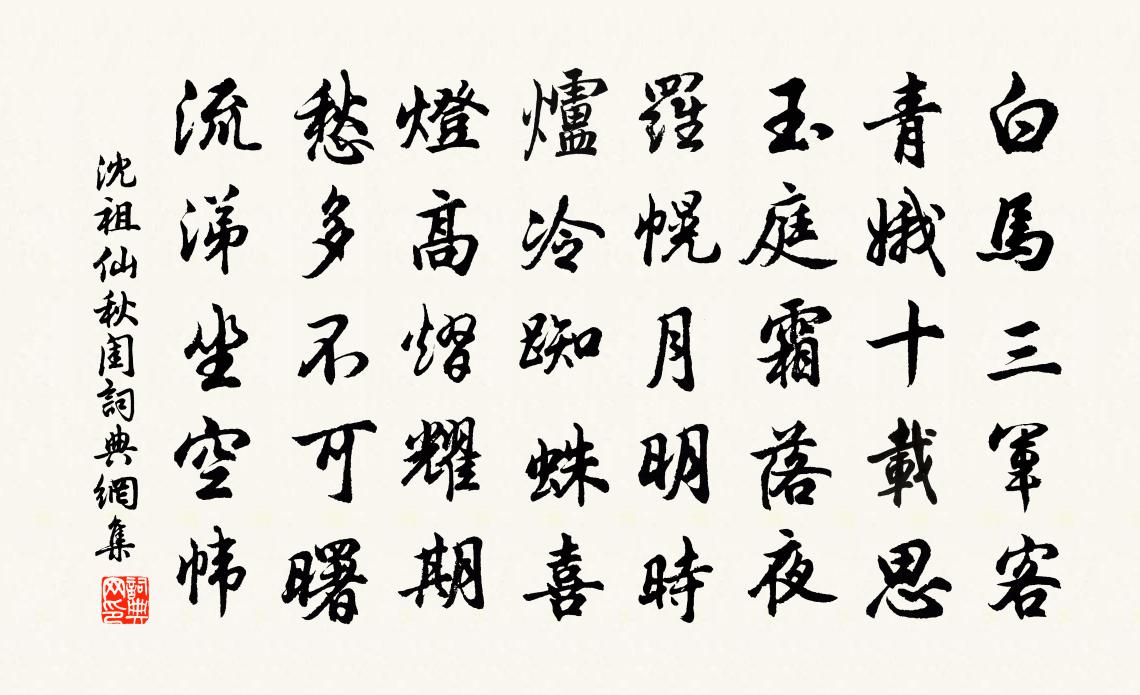 白馬三軍客
青娥十載思
玉庭霜落夜
羅幌月明時
爐冷踟蛛喜
燈高熠耀期
愁多不可曙
流涕坐空幃
沈祖仙秋閨詞典網集
詞典網印